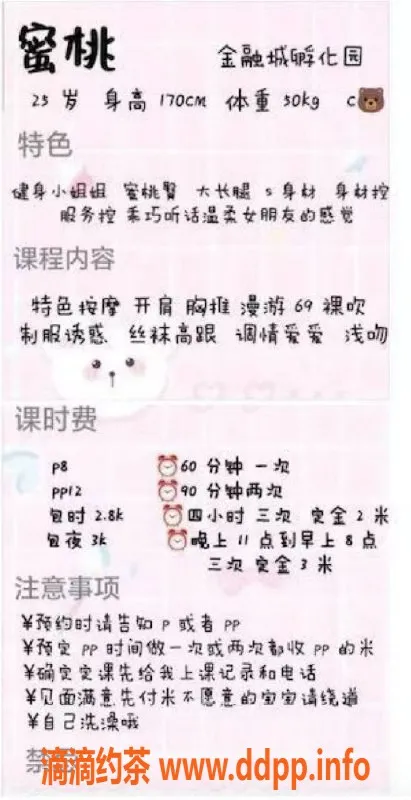 蜜桃 金融城孵化园
25 岁 身高 170CM 体重 50kg C🐻
特色
健身小姐姐 蜜桃臀 大长腿 S 身材 身材控
服务控 乖巧听话温柔女朋友的感觉
课程内容
特色按摩 开肩 胸推 漫游 69 裸吹
制服诱惑 丝袜高跟 调情爱爱 浅吻
课时费
P8 ⏰60 分钟 一次
PP12 ⏰90 分钟两次
包时 2.8k ⏰四小时 三次 定金 2 米
包夜 3k ⏰晚上 11 点到早上 8 点
三次 定金 3 米
注意事项
¥预约时请告知 P 或者 PP
¥预定 PP 时间做一次或两次都收 PP 的米
¥确定定课先给我上课记录和电话
¥见面满意先付米不愿意的宝宝请绕道
¥自己洗澡哦
滴滴约茶 www.ddpp.info